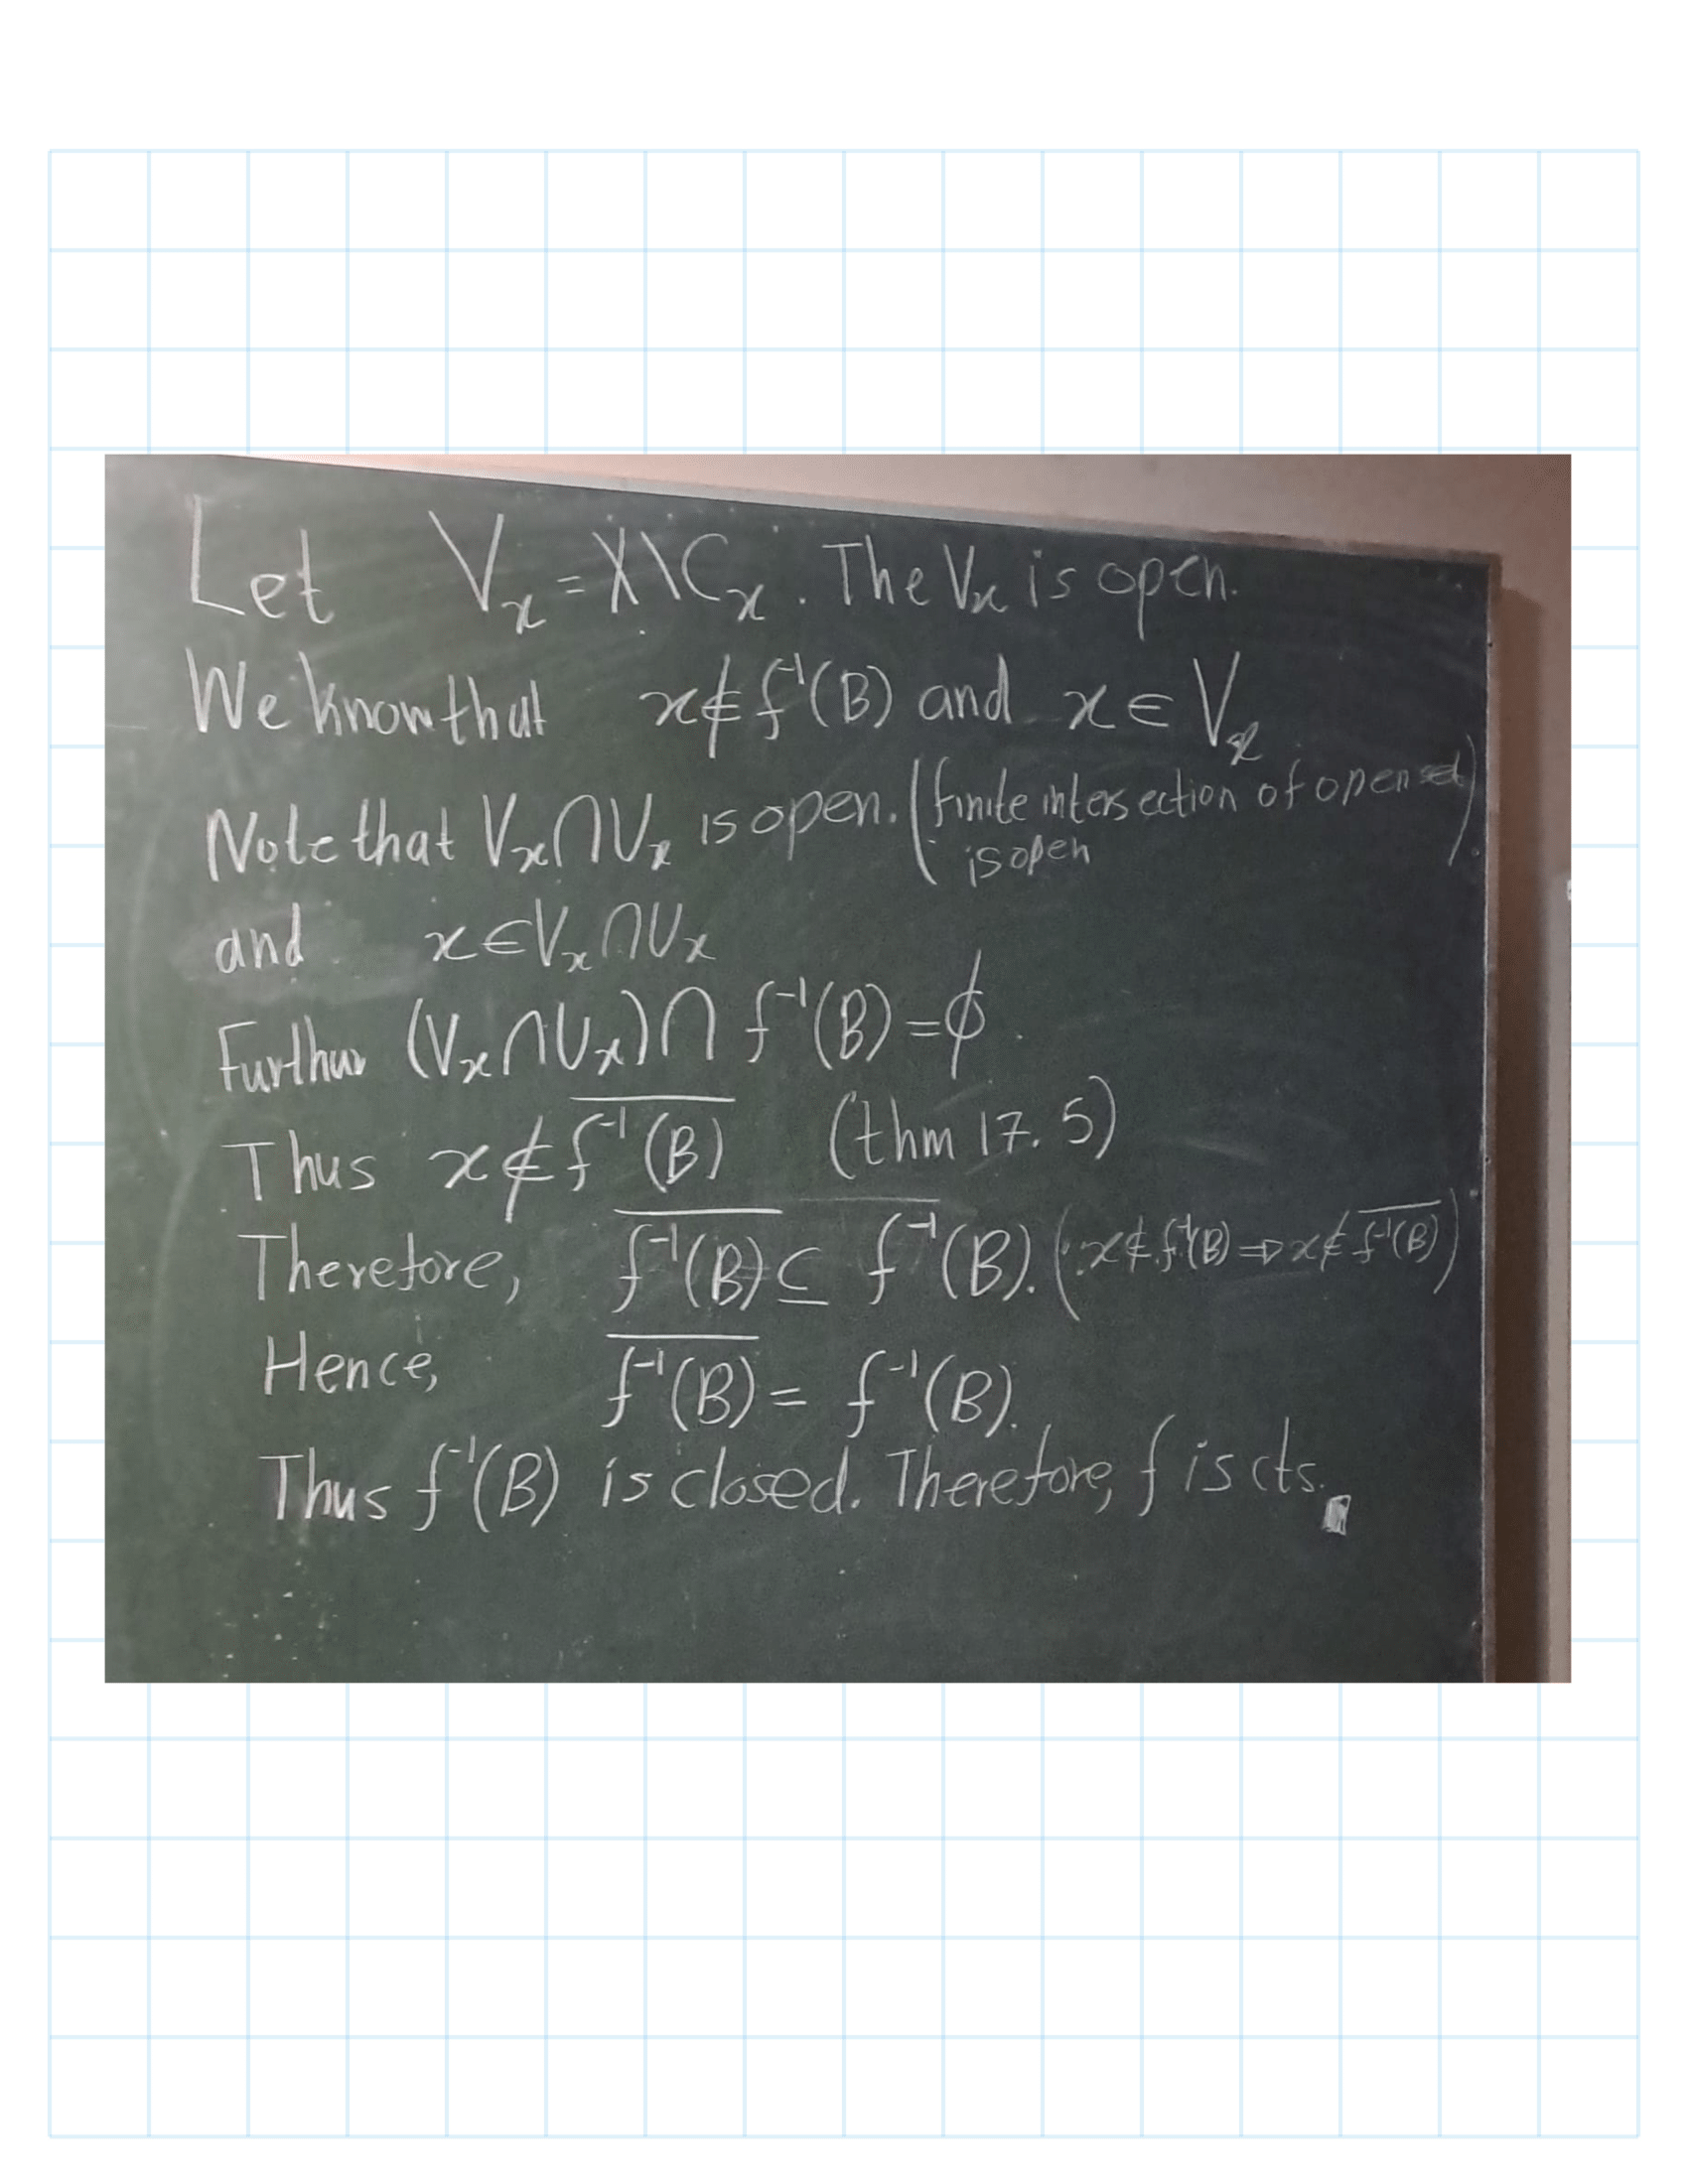 Let Vₓ = X\Cₓ. The Vₓ is open.
We know that x∉f⁻¹(B) and x∈Vₓ
Note that Vₓ∩Uₓ is open. (finite intersection of open set
is open).
and x∈Vₓ∩Uₓ
Further (Vₓ∩Uₓ)∩f⁻¹(B)=ϕ.
Thus x∉\overline{f⁻¹(B)} (thm 17.5)
Therefore, \overline{f⁻¹(B)} ⊆ f⁻¹(B). (∵x∉f⁻¹(B)⇒x∉\overline{f⁻¹(B)})
Hence, \overline{f⁻¹(B)} = f⁻¹(B).
Thus f⁻¹(B) is closed. Therefore, f is cts.